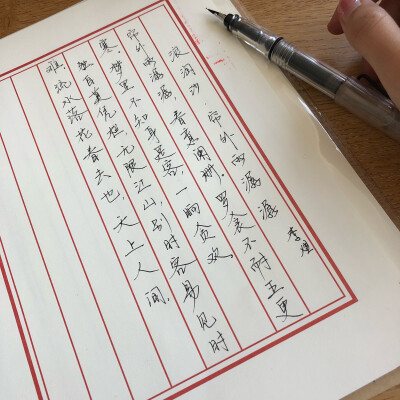 浪淘沙·帘外雨潺潺
李煜
帘外雨潺潺，春意阑珊，罗衾不耐五更
寒，梦里不知身是客，一晌贪欢。
独自莫凭栏，无限江山，别时容易见时
难，流水落花春去也，天上人间。